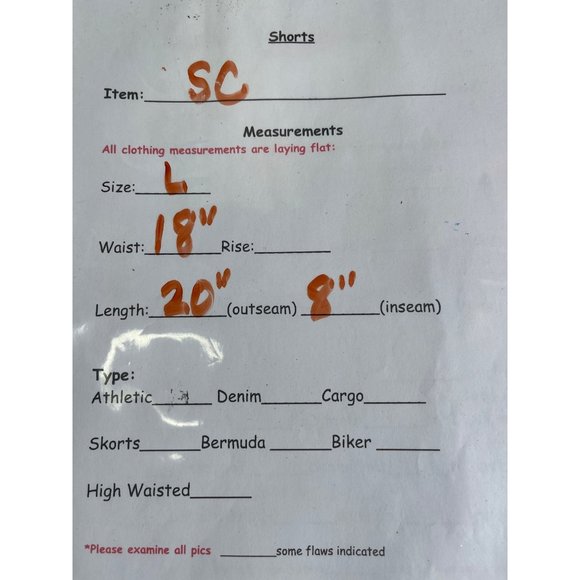 Shorts
Item: SC
Measurements
All clothing measurements are laying flat:
Size: L
Waist: 18" Rise:
Length: 20" (outseam) 8" (inseam)
Type:
Athletic Denim Cargo
Skorts Bermuda Biker
High Waisted
*Please examine all pics some flaws indicated